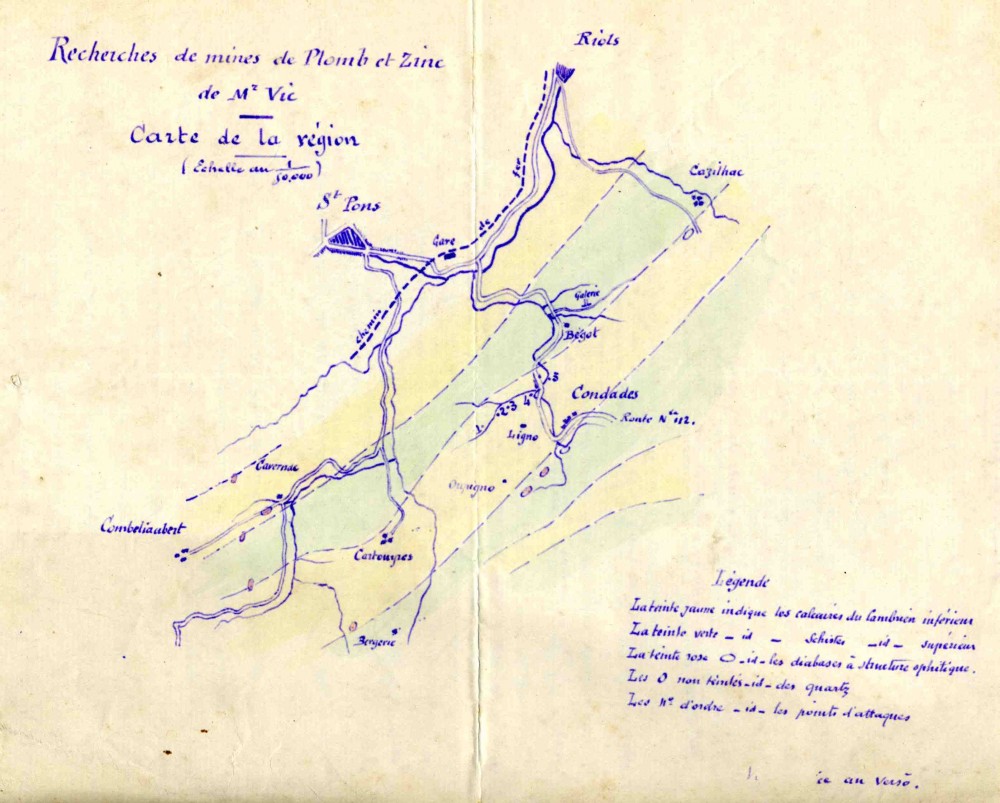 Recherches de mines de Plomb et Zinc
de Mr Vic
Carte de la région
(Echelle au 1/50,000)
Riols
Cazilhac
St Pons
Gare
Chemin de fer
Galerie
Bégot
5
4
2-3
1
Condades
Route Nle 112.
Ligno
Cavenac
Combeliaubert
Cartouyres
Bergerie
Légende
La teinte jaune indique les calcaires du Cambrien inférieur
La teinte verte - id - Schistes - id - supérieur
La teinte rose O - id - les diabases à structure ophitique.
Les O non teintés - id - des quartz
Les Nos d'ordre - id - les points d'attaques
au verso.